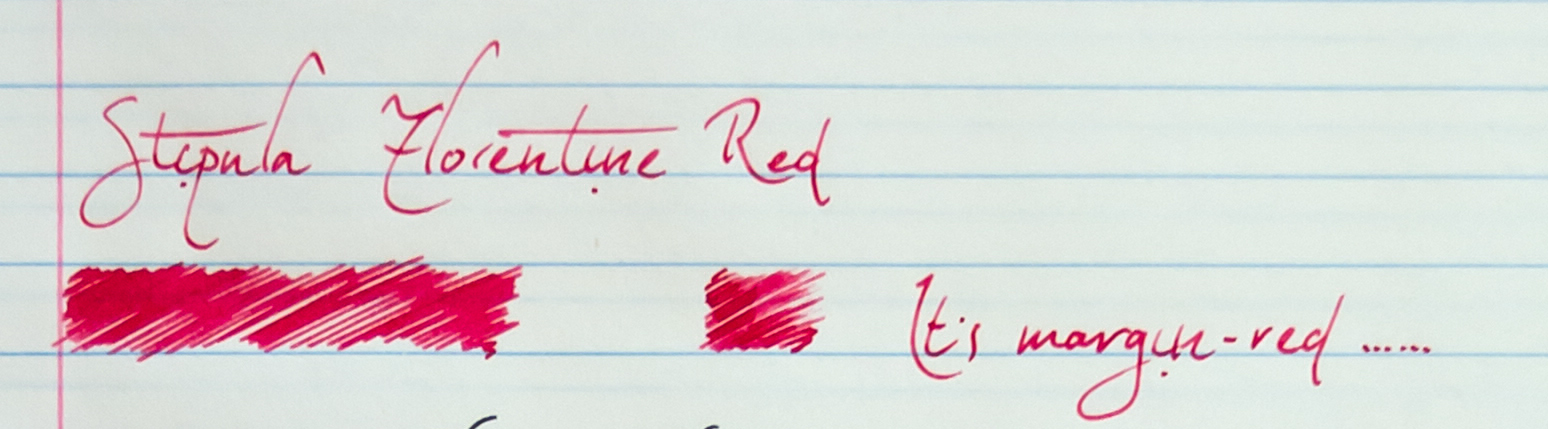 Stipula Florentine Red
It's margin-red ......